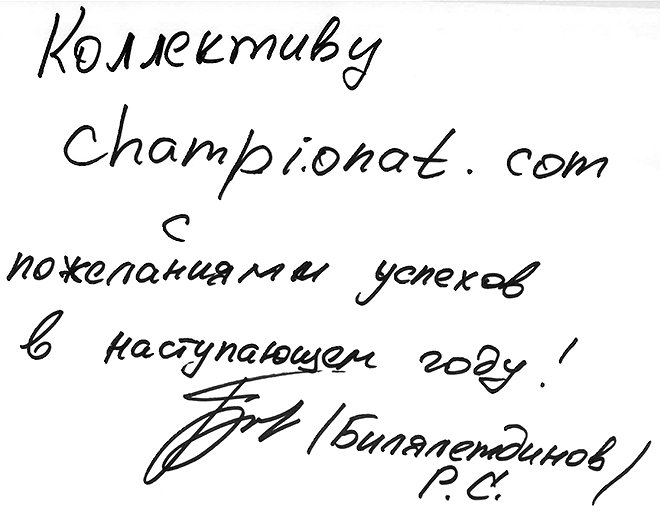 Коллективу
championat.com
с
пожеланиями успехов
в наступающем году!
/Билялетдинов/
Р.С.